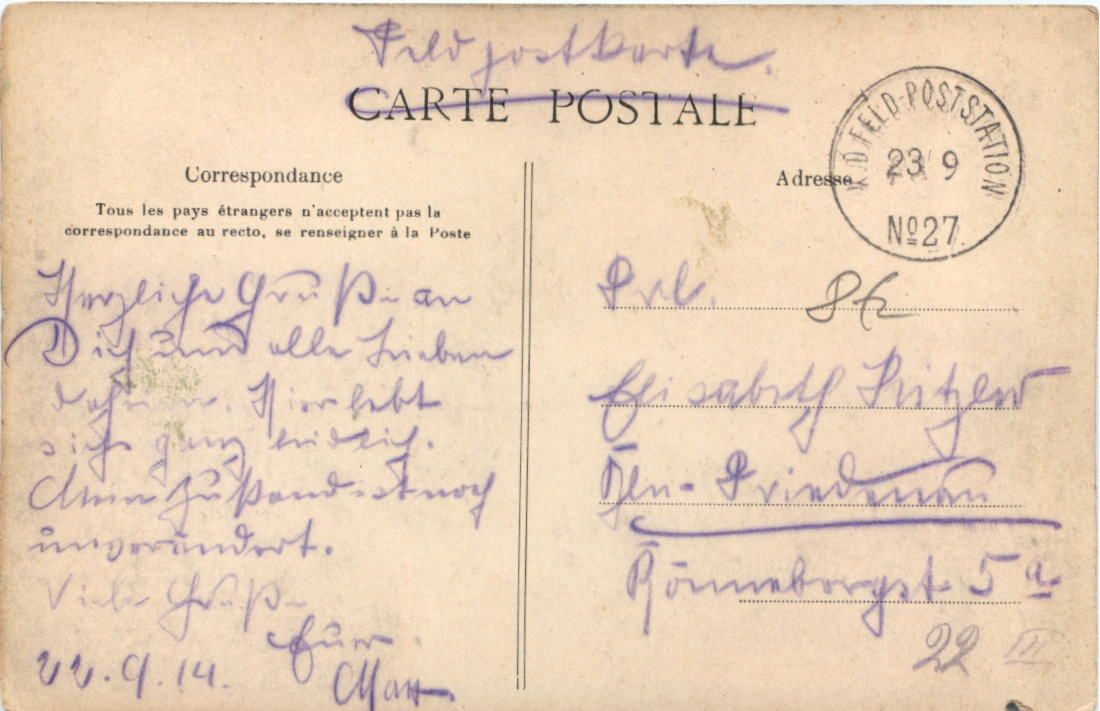 Feldpostkarte.
CARTE POSTALE
K.D. FELD-POSTSTATION
23 9
No 27
Correspondance
Tous les pays étrangers n'acceptent pas la
correspondance au recto, se renseigner à la Poste
Herzliche Grüße an
Dich und alle Lieben
daheim. Hier lebt
sichs ganz leidlich.
Mein Zustand ist noch
unverändert.
Viele Grüße
Euer
22.9.14.
Max
Adresse
Frl.
Elisabeth
Bln-Friedenau
Rönnebergst 5a
22 III